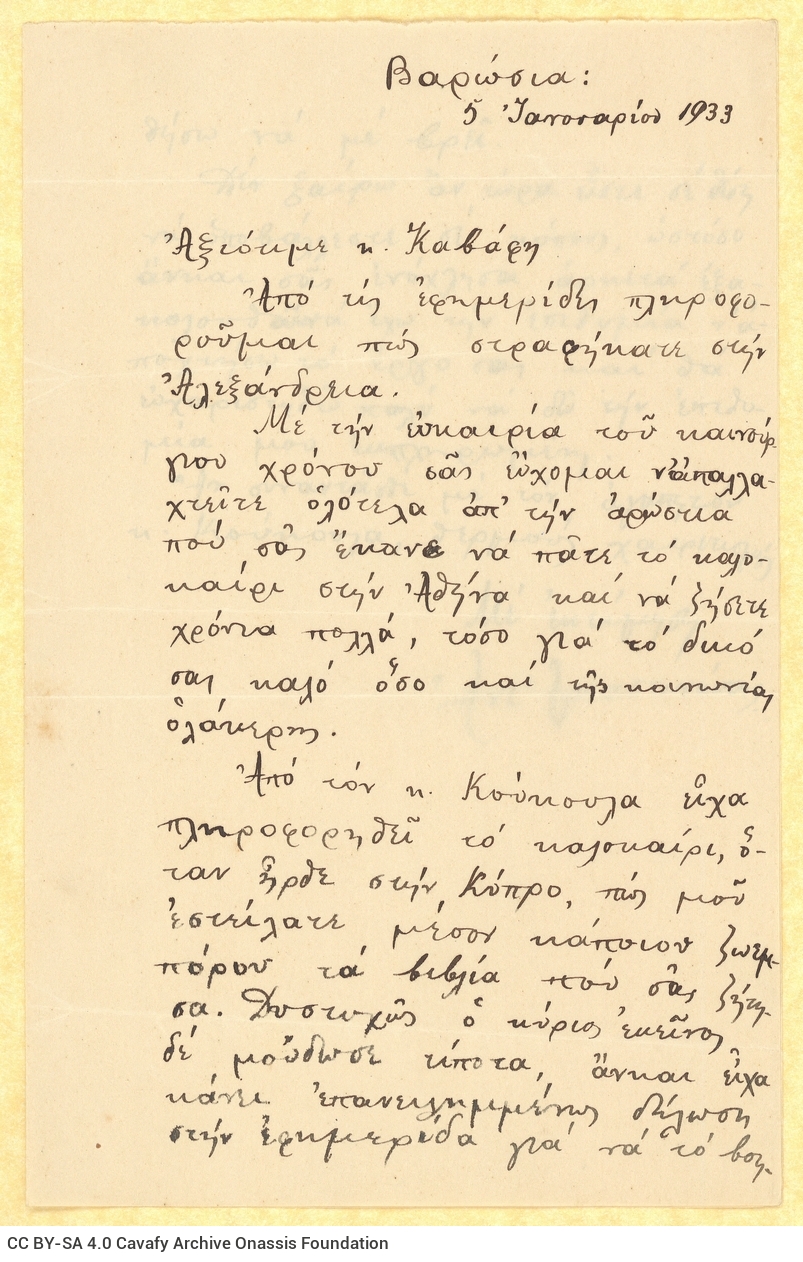 Βαρώσια:
5 Ἰανουαρίου 1933
Ἀξιότιμε κ. Καβάφη
Ἀπό τίς ἐφημερίδες πληροφο-
ροῦμαι πώς στραφήκατε στήν
Ἀλεξάνδρεια.
Μέ τήν εὐκαιρία τοῦ καινούρ-
γιου χρόνου σᾶς εὔχομαι ν' ἀπαλλα-
χτεῖτε ὁλότελα ἀπ' τήν ἀρώστια
πού σᾶς ἔκανε νά πᾶτε τό καλο-
καίρι στήν Ἀθήνα καί νά ζήσετε
χρόνια πολλά, τόσο γιά τό δικό
σας καλό ὅσο καί τῆς κοινωνίας
ὁλάκερης.
Ἀπό τόν κ. Κούκουλα εἶχα
πληροφορηθεῖ τό καλοκαίρι, ὅ-
ταν ἦρθε στήν Κύπρο, πώς μοῦ
ἐστείλατε μέσον κάποιου ζωεμ-
πόρου τά βιβλία πού σᾶς ζήτη-
σα. Δυστυχῶς ὁ κύριος ἐκεῖνος
δέ μοὔδωσε τίποτα, ἄνκαι εἶχα
κάνει ἐπανειλημμένως δήλωση
στήν ἐφημερίδα γιά νά τό βοη-
CC BY-SA 4.0 Cavafy Archive Onassis Foundation